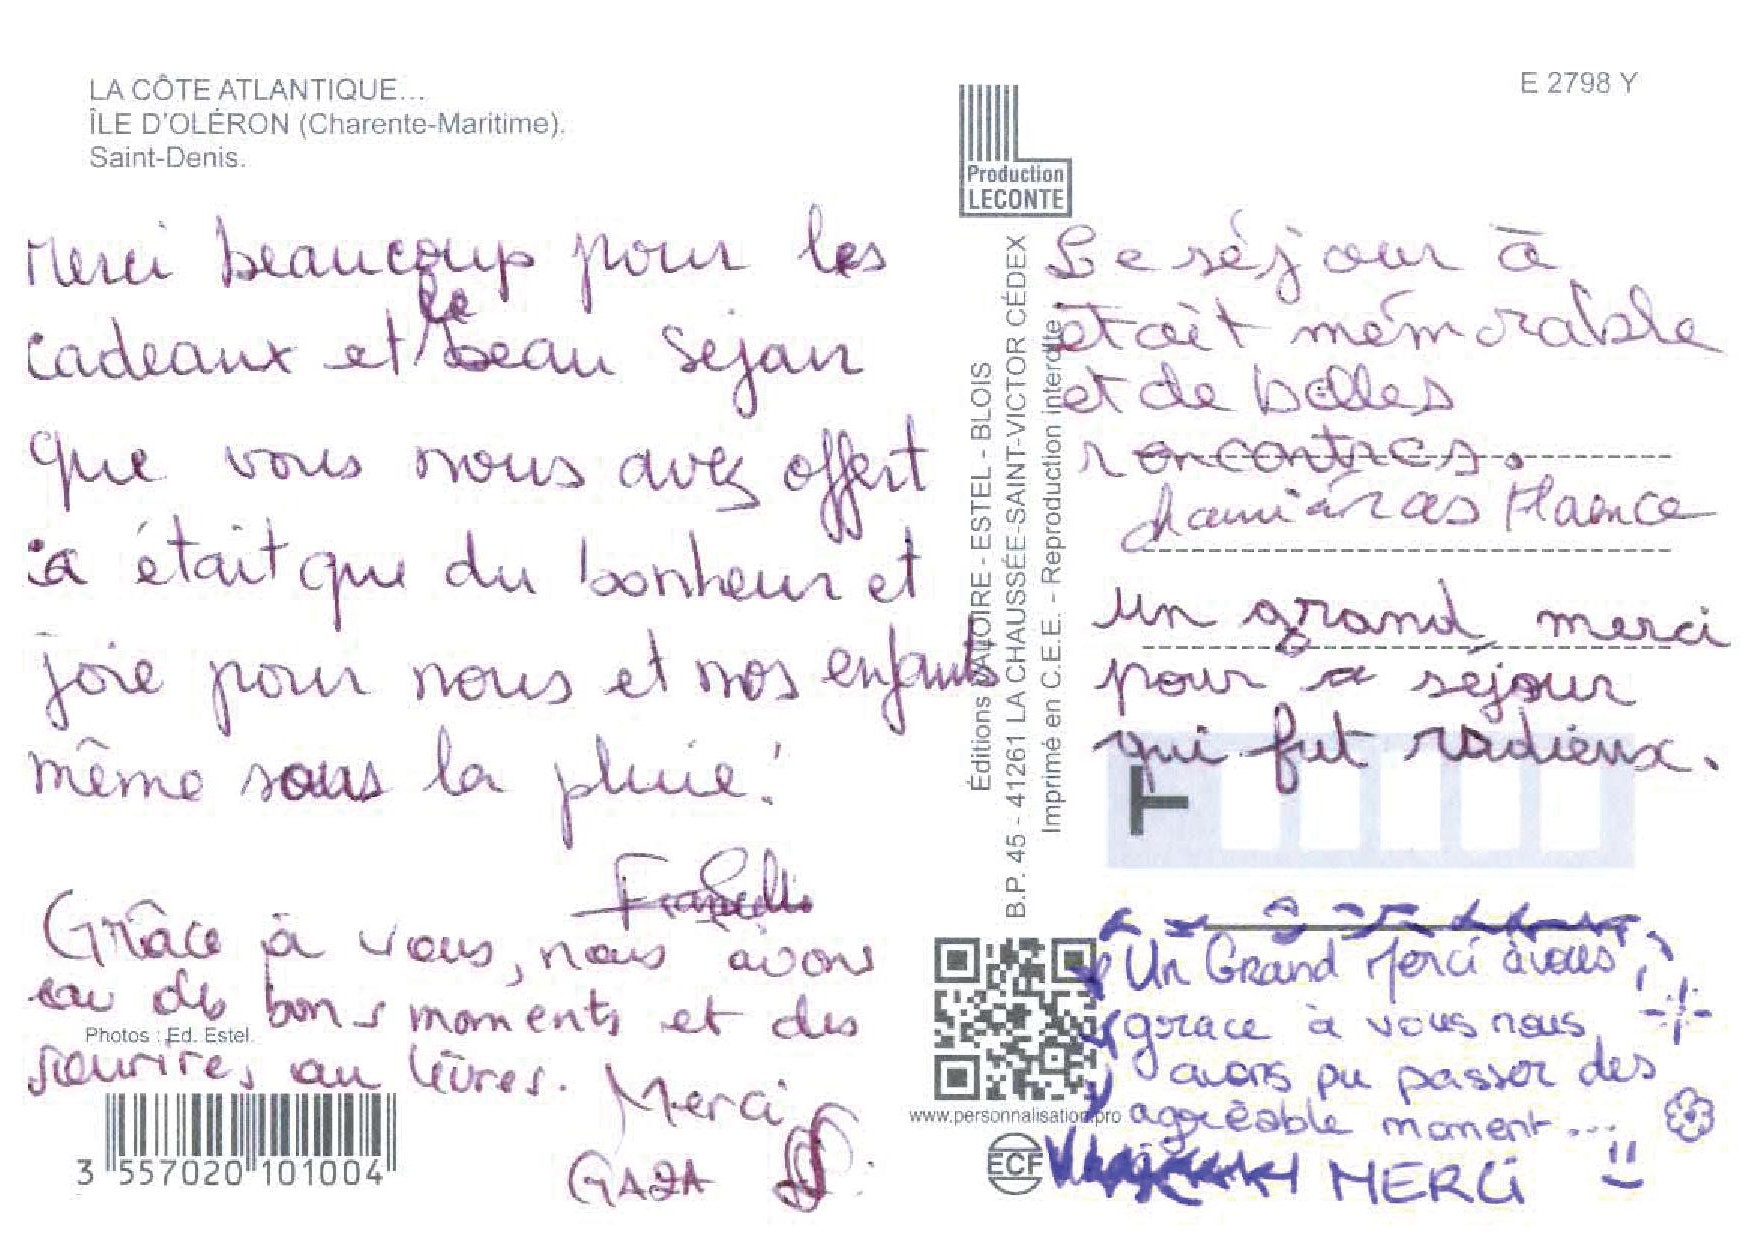 LA CÔTE ATLANTIQUE...
ÎLE D'OLÉRON (Charente-Maritime).
Saint-Denis.
Merci beaucoup pour les
cadeaux et le beau sejour
que vous nous avez offert
sa était que du bonheur et
joie pour nous et nos enfants
même sous la pluie!
Grâce à vous, nous avons
eau des bons moments et des
Photos : Ed. Estel.
sourires au lèvres.
Merci
GAZA
3 557020 101004
Production
LECONTE
Éditions VALOIRE - ESTEL - BLOIS
B.P. 45 - 41261 LA CHAUSSÉE-SAINT-VICTOR CÉDEX
Imprimé en C.E.E. - Reproduction interdite
www.personnalisation.pro
ECF
E 2798 Y
Le séjour à
était mémorable
et de belles
rencontres.
un grand merci
pour ce séjour
qui fut radieux.
T
Un Grand Merci à vous,
grace à vous nous
avons pu passer des
agréable moment...
MERCi